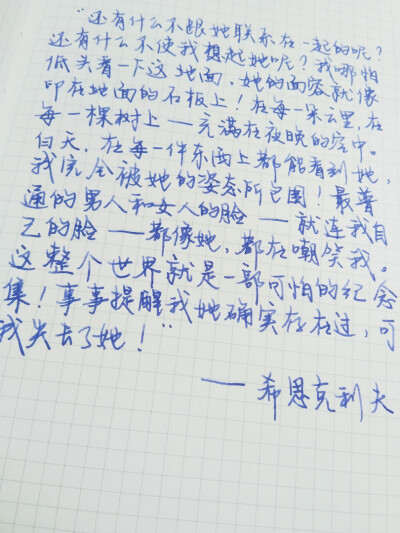 “还有什么不跟她联系在一起的呢?
还有什么不使我想起她呢?我哪怕
低头看一下这地面,她的面容就像
印在地面的石板上!在每一朵云里,在
每一棵树上——充满在夜晚的空中。
白天,在每一件东西上都能看到她,
我完全被她的姿态所包围!最普
通的男人和女人的脸——就连我自
己的脸——都像她,都在嘲笑我。
这整个世界就是一部可怕的纪念
集!事事提醒我她确实存在过,可
我失去了她!”
——希思克利夫